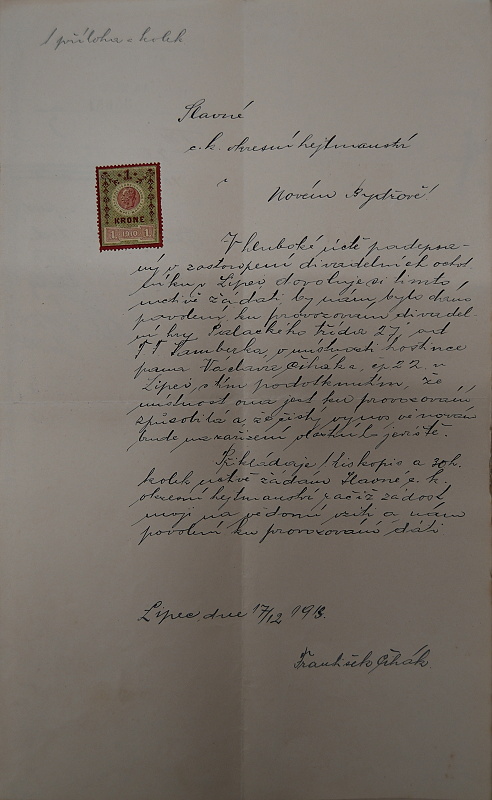 1 příloha a kolek
Slavné
c. k. okresní hejtmanství
v
Novém Bydžově!
1
KRONE
1 1910 1
V hluboké úctě podepsa-
ný v zastoupení divadelních ochot
níků v Lipec dovoluje si tímto
uctivě žádati, by nám bylo dáno
povolení ku provozování divadel-
ní hry Palackého třída 27, od
F F Šamberka, v místnosti hostince
pana Václava Čiháka, čp 22. v
Lipec, s tím podotknutím, že
místnost ona jest ku provozování
způsobilá a že čistý výnos věnován
bude na zařízení vlastního jeviště.
Přikládaje 1 tiskopis a 30 h.
kolek uctivě žádám Slavné c. k.
okresní hejtmanství račiž žádost
moji na vědomí vzíti a nám
povolení ku provozování dáti
Lipec, dne 17/12 1913.
František Čihák.